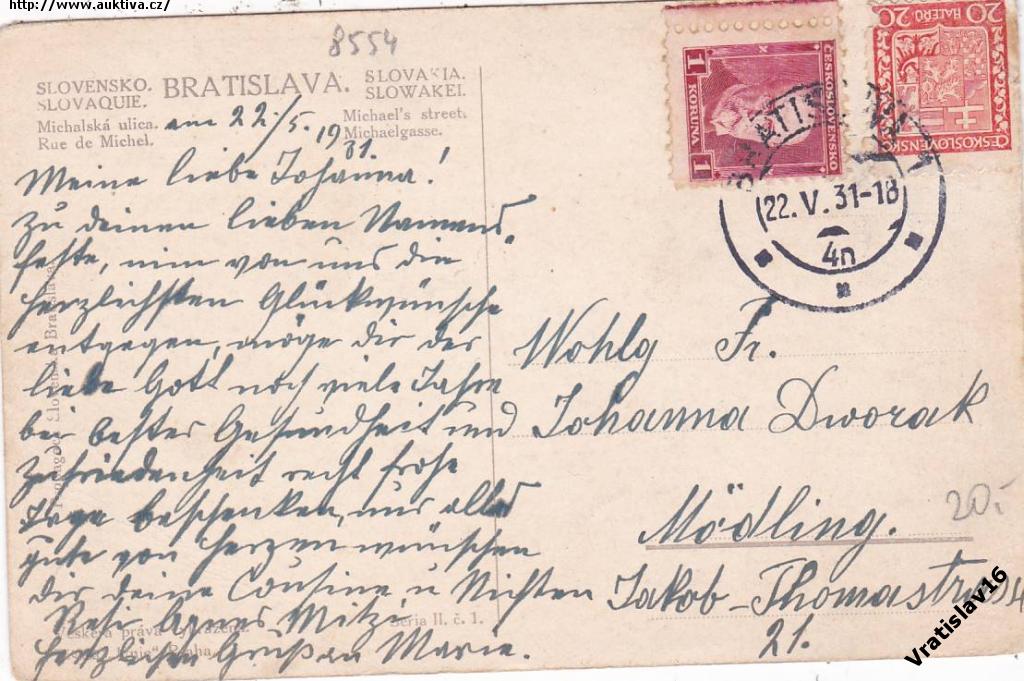 http://www.auktiva.cz/
8554
SLOVENSKO. BRATISLAVA. SLOVAKIA.
SLOVAQUIE. SLOWAKEI.
Michalská ulica. Michael's street.
Rue de Michel. Michaelgasse.
am 22./5. 19
31.
Meine liebe Johanna!
Zu deinen lieben Namens-
feste, nim von uns die
herzlichsten Glückwünsche
entgegen, möge dir der
liebe Gott noch viele Jahre
bei bester Gesundheit und
Zufriedenheit recht frohe
Tage beschenken, uns alles
gute von Herzen wünschen
dir deine Cousine u Nichten
Resi Agnes Mitzi.
herzlichen Gruß an Marie.
Série II. č. 1.
Veškerá práva vyhrazena.
"Unie" Praha.
1 KORUNA 1
ČESKOSLOVENSKO
20 HALÉŘŮ 20
ČESKOSLOVENSKO
BRATISLAVA 1
22. V. 31-18
4n
Wohlg Fr.
Johanna Dworak
Mödling.
Jakob-Thomastrasse
21.
20.-
Vratislav16